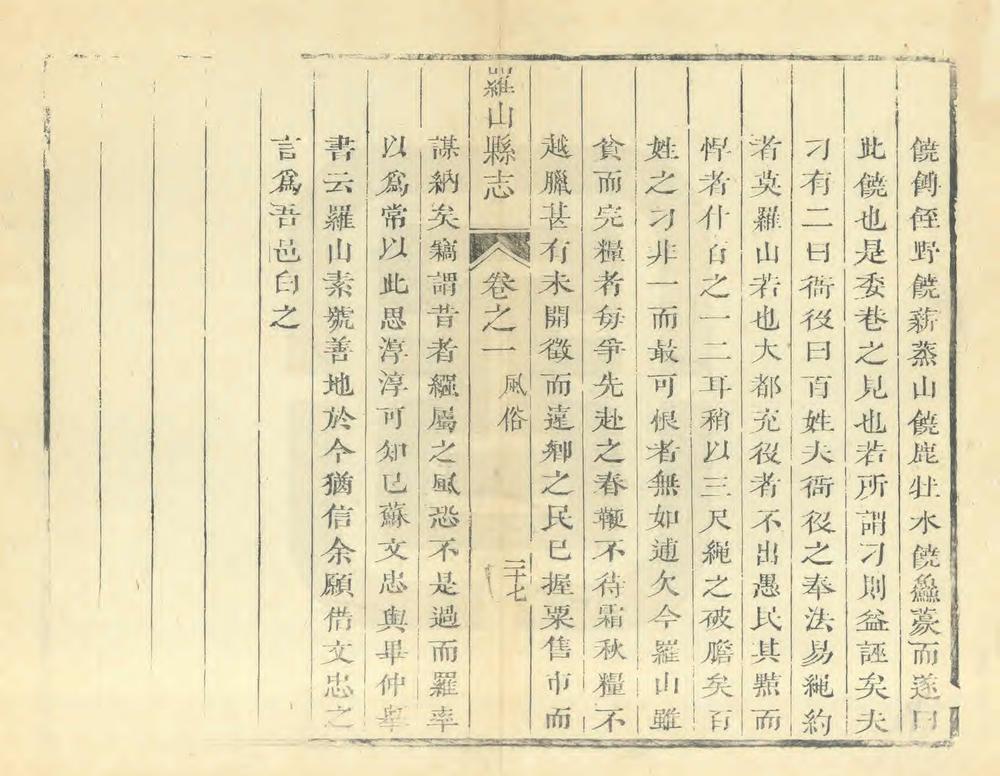 饒餺餁野饒薪蒸山饒鹿壯水饒鱻蒙而遂曰
此饒也是委巷之見也若所謂刁則益誣矣夫
刁有二曰衙役曰百姓夫衙役之奉法易䋲約
者莫羅山若也大都充役者不出愚民其黠而
悍者什百之一二耳稍以三尺繩之破膽矣百
姓之刁非一而最可恨者無如逋欠今羅山雖
貧而完糧者每爭先赴之春鞭不待霜秋糧不
越臘甚有未開徵而遠鄕之民已握粟售市而
羅山縣志 卷之一 風俗 二十七
謀納矣竊謂昔者繦屬之風恐不是過而羅率
以爲常以此思淳淳可知已蘇文忠與畢仲舉
書云羅山素號善地於今猶信余願借文忠之
言爲吾邑白之